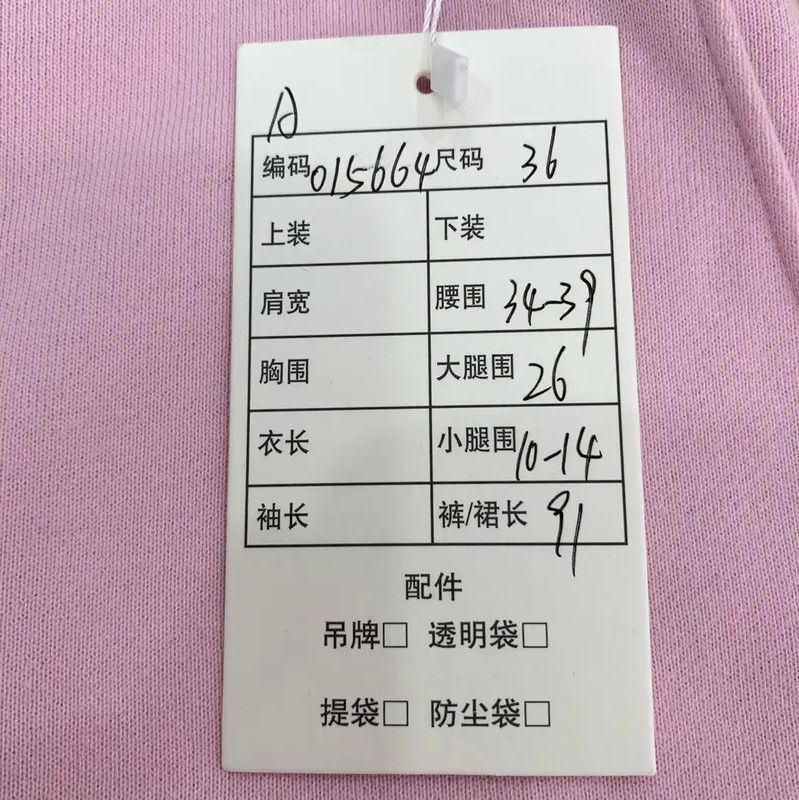 A
编码 015664 尺码 36
上装 下装
肩宽 腰围 34-39
胸围 大腿围 26
衣长 小腿围 10-14
袖长 裤/裙长 91
配件
吊牌□ 透明袋□
提袋□ 防尘袋□